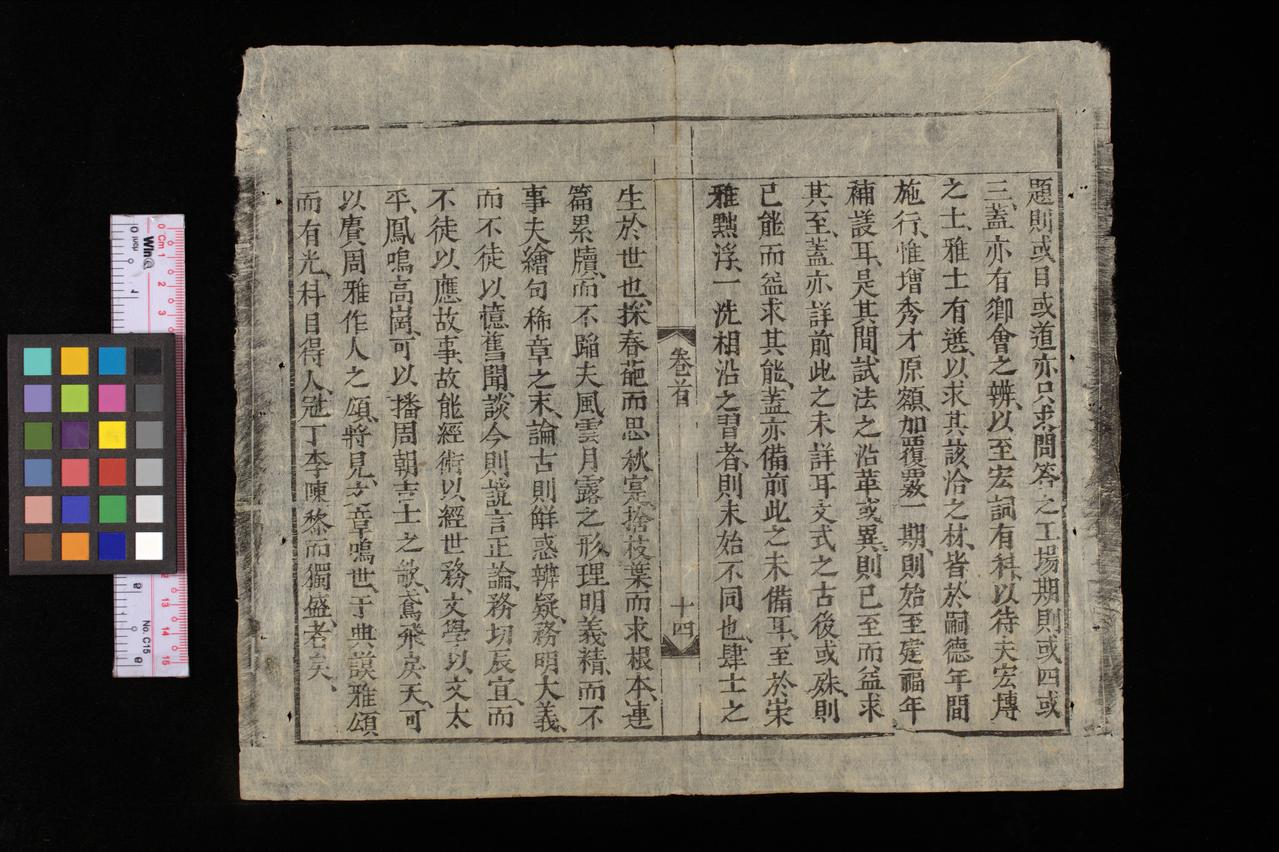 題則或目或道亦只求問答之工場期則或四或
三、蓋亦有鄉會之辨、以至宏詞有科、以待夫宏博
之士、雅士有選、以求其該洽之材、皆於嗣德年間
施行、惟增秀才原額、加覆覈一期、則始至建福年
補設耳、是其間試法之沿革或異、則已至而益求
其至、蓋亦詳前此之未詳耳、文式之古後或殊、則
已能而益求其能、蓋亦備前此之未備耳、至於崇
雅黜浮、一洗相沿之習者、則未始不同也、肆士之
卷首
十四
生於世也、採春葩而思秋寔、捨枝葉而求根本、連
篇累牘、而不蹈夫風雲月露之形、理明義精、而不
事夫繪句稀章之末、論古則鮮惑辨疑、務明大義、
而不徒以憶舊聞、談今則讜言正論、務切辰宜、而
不徒以應故事、故能經術以經世務、文學以文太
平、鳳鳴高崗、可以播周朝吉士之歌、鳶飛戾天、可
以賡周雅作人之頌、將見文章鳴世、于典謨雅頌
而有光、科目得人、冠丁李陳黎而獨盛者矣、